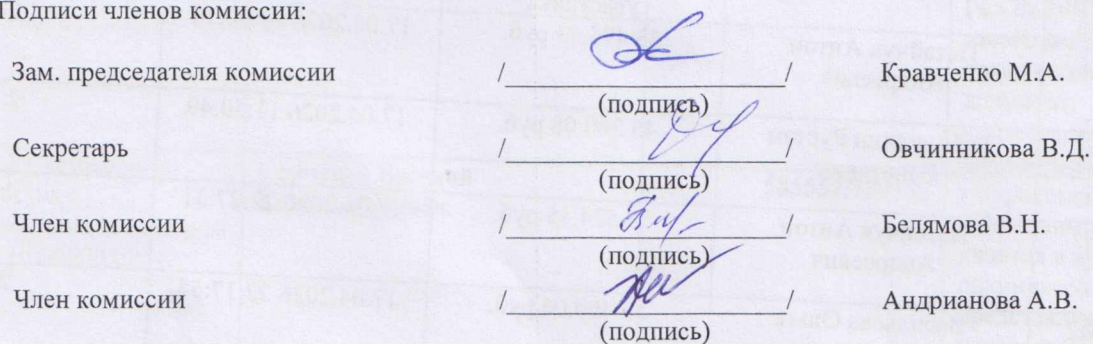 Подписи членов комиссии:
Зам. председателя комиссии / / Кравченко М.А.
(подпись)
Секретарь / / Овчинникова В.Д.
(подпись)
Член комиссии / / Белямова В.Н.
(подпись)
Член комиссии / / Андрианова А.В.
(подпись)